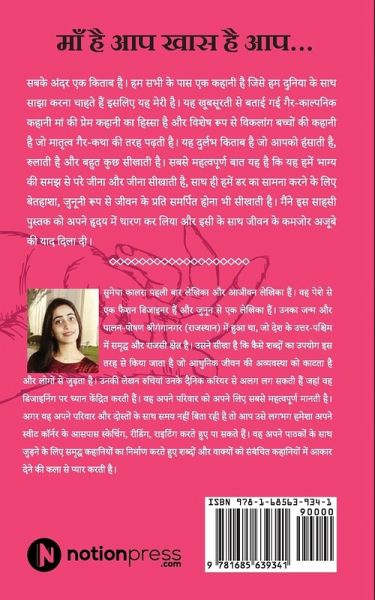 माँ है आप खास है आप...
सबके अंदर एक किताब है। हम सभी के पास एक कहानी है जिसे हम दुनिया के साथ
साझा करना चाहते हैं इसलिए यह मेरी है। यह खूबसूरती से बताई गई गैर-काल्पनिक
कहानी मां की प्रेम कहानी का हिस्सा है और विशेष रूप से विकलांग बच्चों की कहानी
है जो मातृत्व गैर-कथा की तरह पढ़ती है। यह दुर्लभ किताब है जो आपको हंसाती है,
रुलाती है और बहुत कुछ सीखाती है। सबसे महत्वपूर्ण बात यह है कि यह हमें भाग्य
की समझ से परे जीना और जीना सीखाती है, साथ ही हमें डर का सामना करने के लिए
बेतहाशा, जुनूनी रूप से जीवन के प्रति समर्पित होना भी सीखाती है। मैंने इस साहसी
पुस्तक को अपने हृदय में धारण कर लिया और इसी के साथ जीवन के कमजोर अजूबे
की याद दिला दी।
सुमेधा कालरा पहली बार लेखिका और आजीवन लेखिका हैं। वह पेशे से
एक फैशन डिजाइनर हैं और जुनून से एक लेखिका हैं। उनका जन्म और
पालन-पोषण श्रीगंगानगर (राजस्थान) में हुआ था, जो देश के उत्तर-पश्चिम
में समृद्ध और राजसी क्षेत्र है। उसने सीखा है कि कैसे शब्दों का उपयोग इस
तरह से किया जाता है जो आधुनिक जीवन की अव्यवस्था को काटता है
और लोगों से जुड़ता है। उनकी लेखन रुचियां उनके दैनिक करियर से अलग लग सकती हैं जहां वह
डिजाइनिंग पर ध्यान केंद्रित करती हैं। वह अपने परिवार को अपने लिए सबसे महत्वपूर्ण मानती है।
अगर वह अपने परिवार और दोस्तों के साथ समय नहीं बिता रही है तो आप उसे लगभग हमेशा अपने
स्वीट कॉर्नर के आसपास स्केचिंग, रीडिंग, राइटिंग करते हुए पा सकते हैं। वह अपने पाठकों के साथ
जुड़ने के लिए समृद्ध कहानियों का निर्माण करते हुए शब्दों और वाक्यों को संबंधित कहानियों में आकार
देने की कला से प्यार करती है।
ISBN 978-1-68563-934-1
90000
9 781685 639341
N notionpress
.com